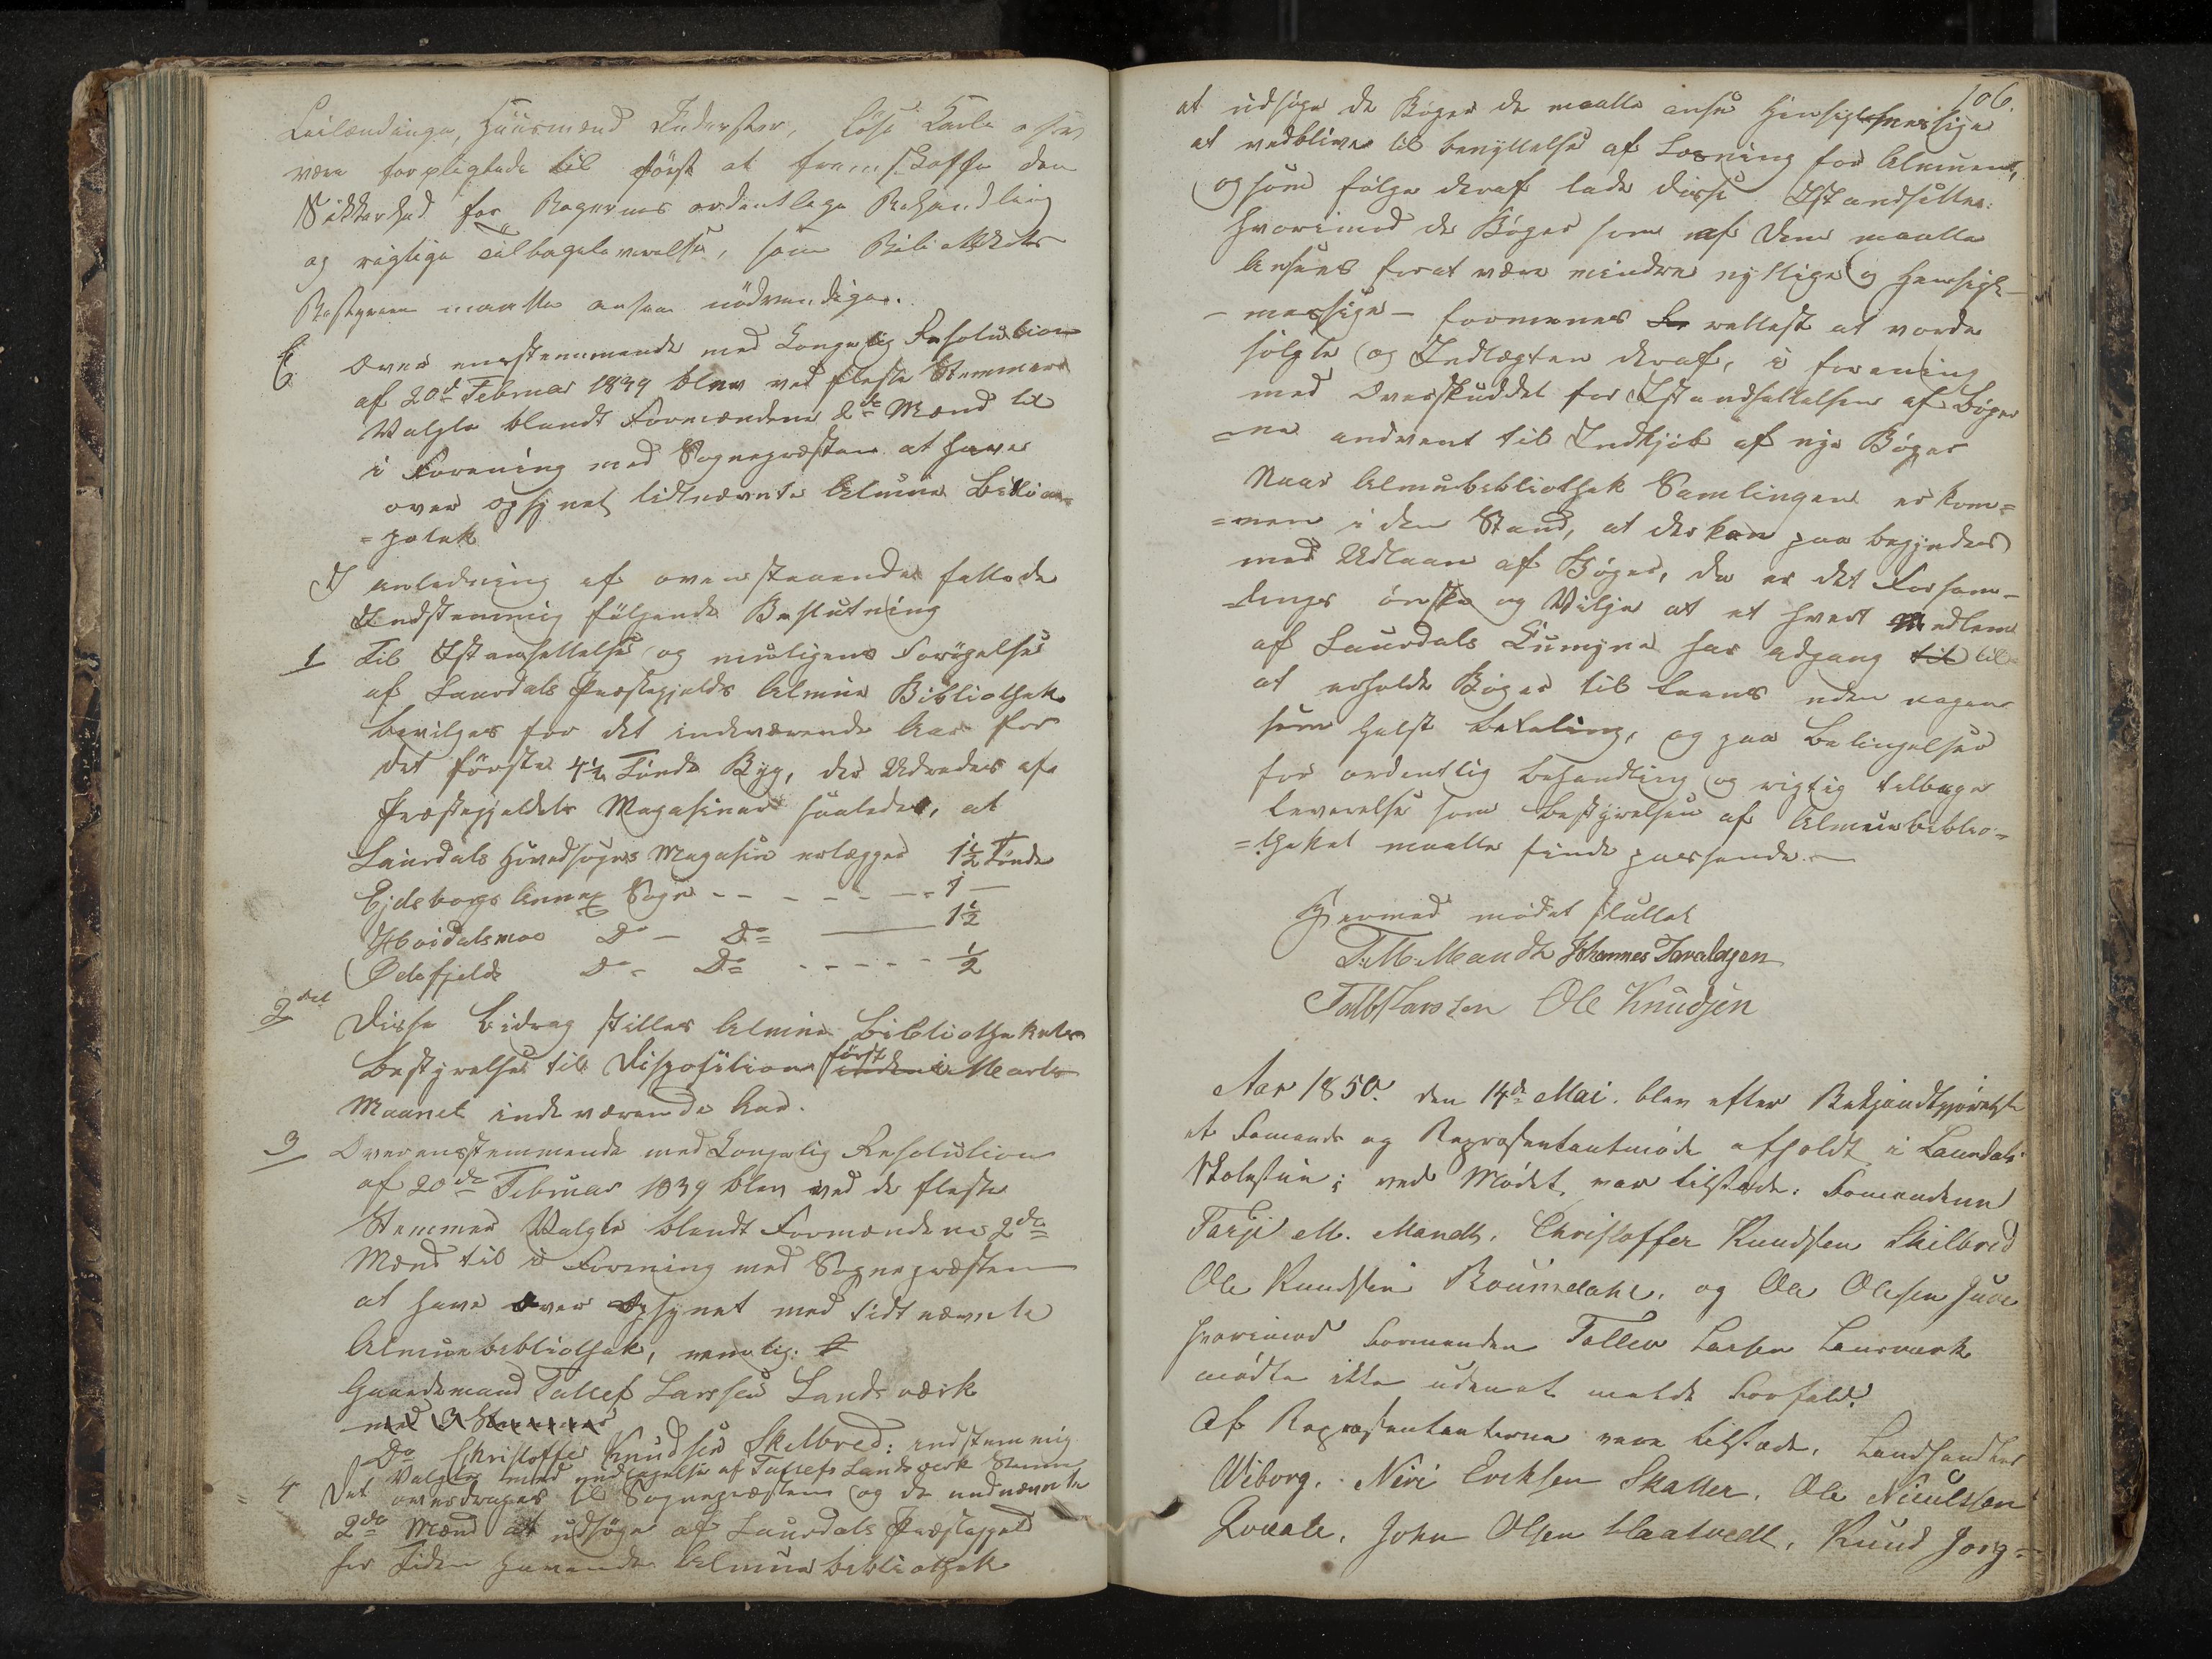 Leilændinge, Huusmænd Inderster, løse Karle osv
være forpligtede til först at fremskaffe den
Sikkerhed for Bogernes ordentlege Behandling
og rigtige Tilbagelevverelse, som Bibliothekets
Bestyrere maatte ansee nödvendige.
Over ensstemmende med Kongelig Resolution
af 20d Februar 1839 blev ved fleste Stemmer
Valgte blandt Formændene 2de Mænd til
i Forening med Sognepræsten at have
over opsynet tidtnævnte Almue
I anledning af ovenstaaende fattede
Endstemmig følgende Beslutning
1 Til Istansettelse og muligens Forögelse
af Laurdals Præstegjelds Almue Bibliothek
bevilges for det indeværende Aar for
det förste 4½ Tönde Byg, der Udredes af
Præstegjeldets Magasiner saaledes, at
Laurdals Hovedsogns Magasin erlægger 1½ Tönde
Ejdsborgs Annex Sogn - - - - - - - 1 —
Høidalsmoe Do — Do — 1½
Do - Do - - - - - ½
2det
Disse Bidrag stilles Almue Bibliothekets
Bestyrelse til Disposition först i Marts
Maanet indeværende Aar.
3 Overensstemmende med Kongelig Resolution
af 20de Februar 1839 blev ved de fleste
Stemmer Valgte blandt Formændene 2de
Mænd til i Forening med Sognepræsten
at have Over Opsynet med tidtnævnte
Almuebibliothek, nemlig:
Gaardmand Tallef Larssen Landsværk
med 3 Stemmer
Do Christoffer Knudsen Skelbred: endstemmig
Valgte med undtagelse af Tallefs Landsverk Stemme
4 Det overdrages til Sognepræsten og de nednævnte
2de Mænd at udsöge af Laurdals Præstegjeld
for Tiden havende Almue bibliothek
106.
at udsöge de Böger de maatte anse Hensigtsmessige
at vedblive til benyttelse af Læsning for Almuen,
og som følge deraf lade disse Istandsette:
hvorimod de Böger som af dem maatte
Ansees forat være mindre nyttige og Hensigt-
- messige - formenes rettest at vorde
solgte og Indtægten deraf, i forening
med Overskuddet for Istandsettelsen af Böger
=ne andvent til Indkjöb af nye Böger
Naar Almuebibliothek Samlingen er kom=
=men i den Stand, at der kan paa begyndes
med Udlaan af Böger, da er det Forsam-
=lings önske og Vilje at et hvert Medlem
af Laurdals har adgang til til
at erholde Böger til Laans uden nogen
som helst betaling, og paa Betingelser
for ordentlig behandling og rigtig tilbage
leverelse som Bestyrelsen af Almuebiblio=
=theket maatte finde passende. —
Hermed mödet sluttet
T. M. Mandt Johannes Taraldsen
Ole Knudsen
Aar 1850. den 14de Mai. blev efter Bekjendtgjørelse
et Formands og Repræsentantmöde afholdt i Laurdals
Skolestue; ved Mödet, var tilstede: Formendene
Tarje M. Mandt, Christoffer Knudsen Skilbred
Ole Knudsen Roumdahl. og Ole Olesen Juve
hvorimod Formanden Tallev Larsen
mödte ikke udenat melde Forfald.
Af Repræsentanterne vare tilstede, Landhandler
Wiborg, Niri Ericksen Skatter. Ole
Qvaale, John Olsen Haatvedt, Knud Jorg=